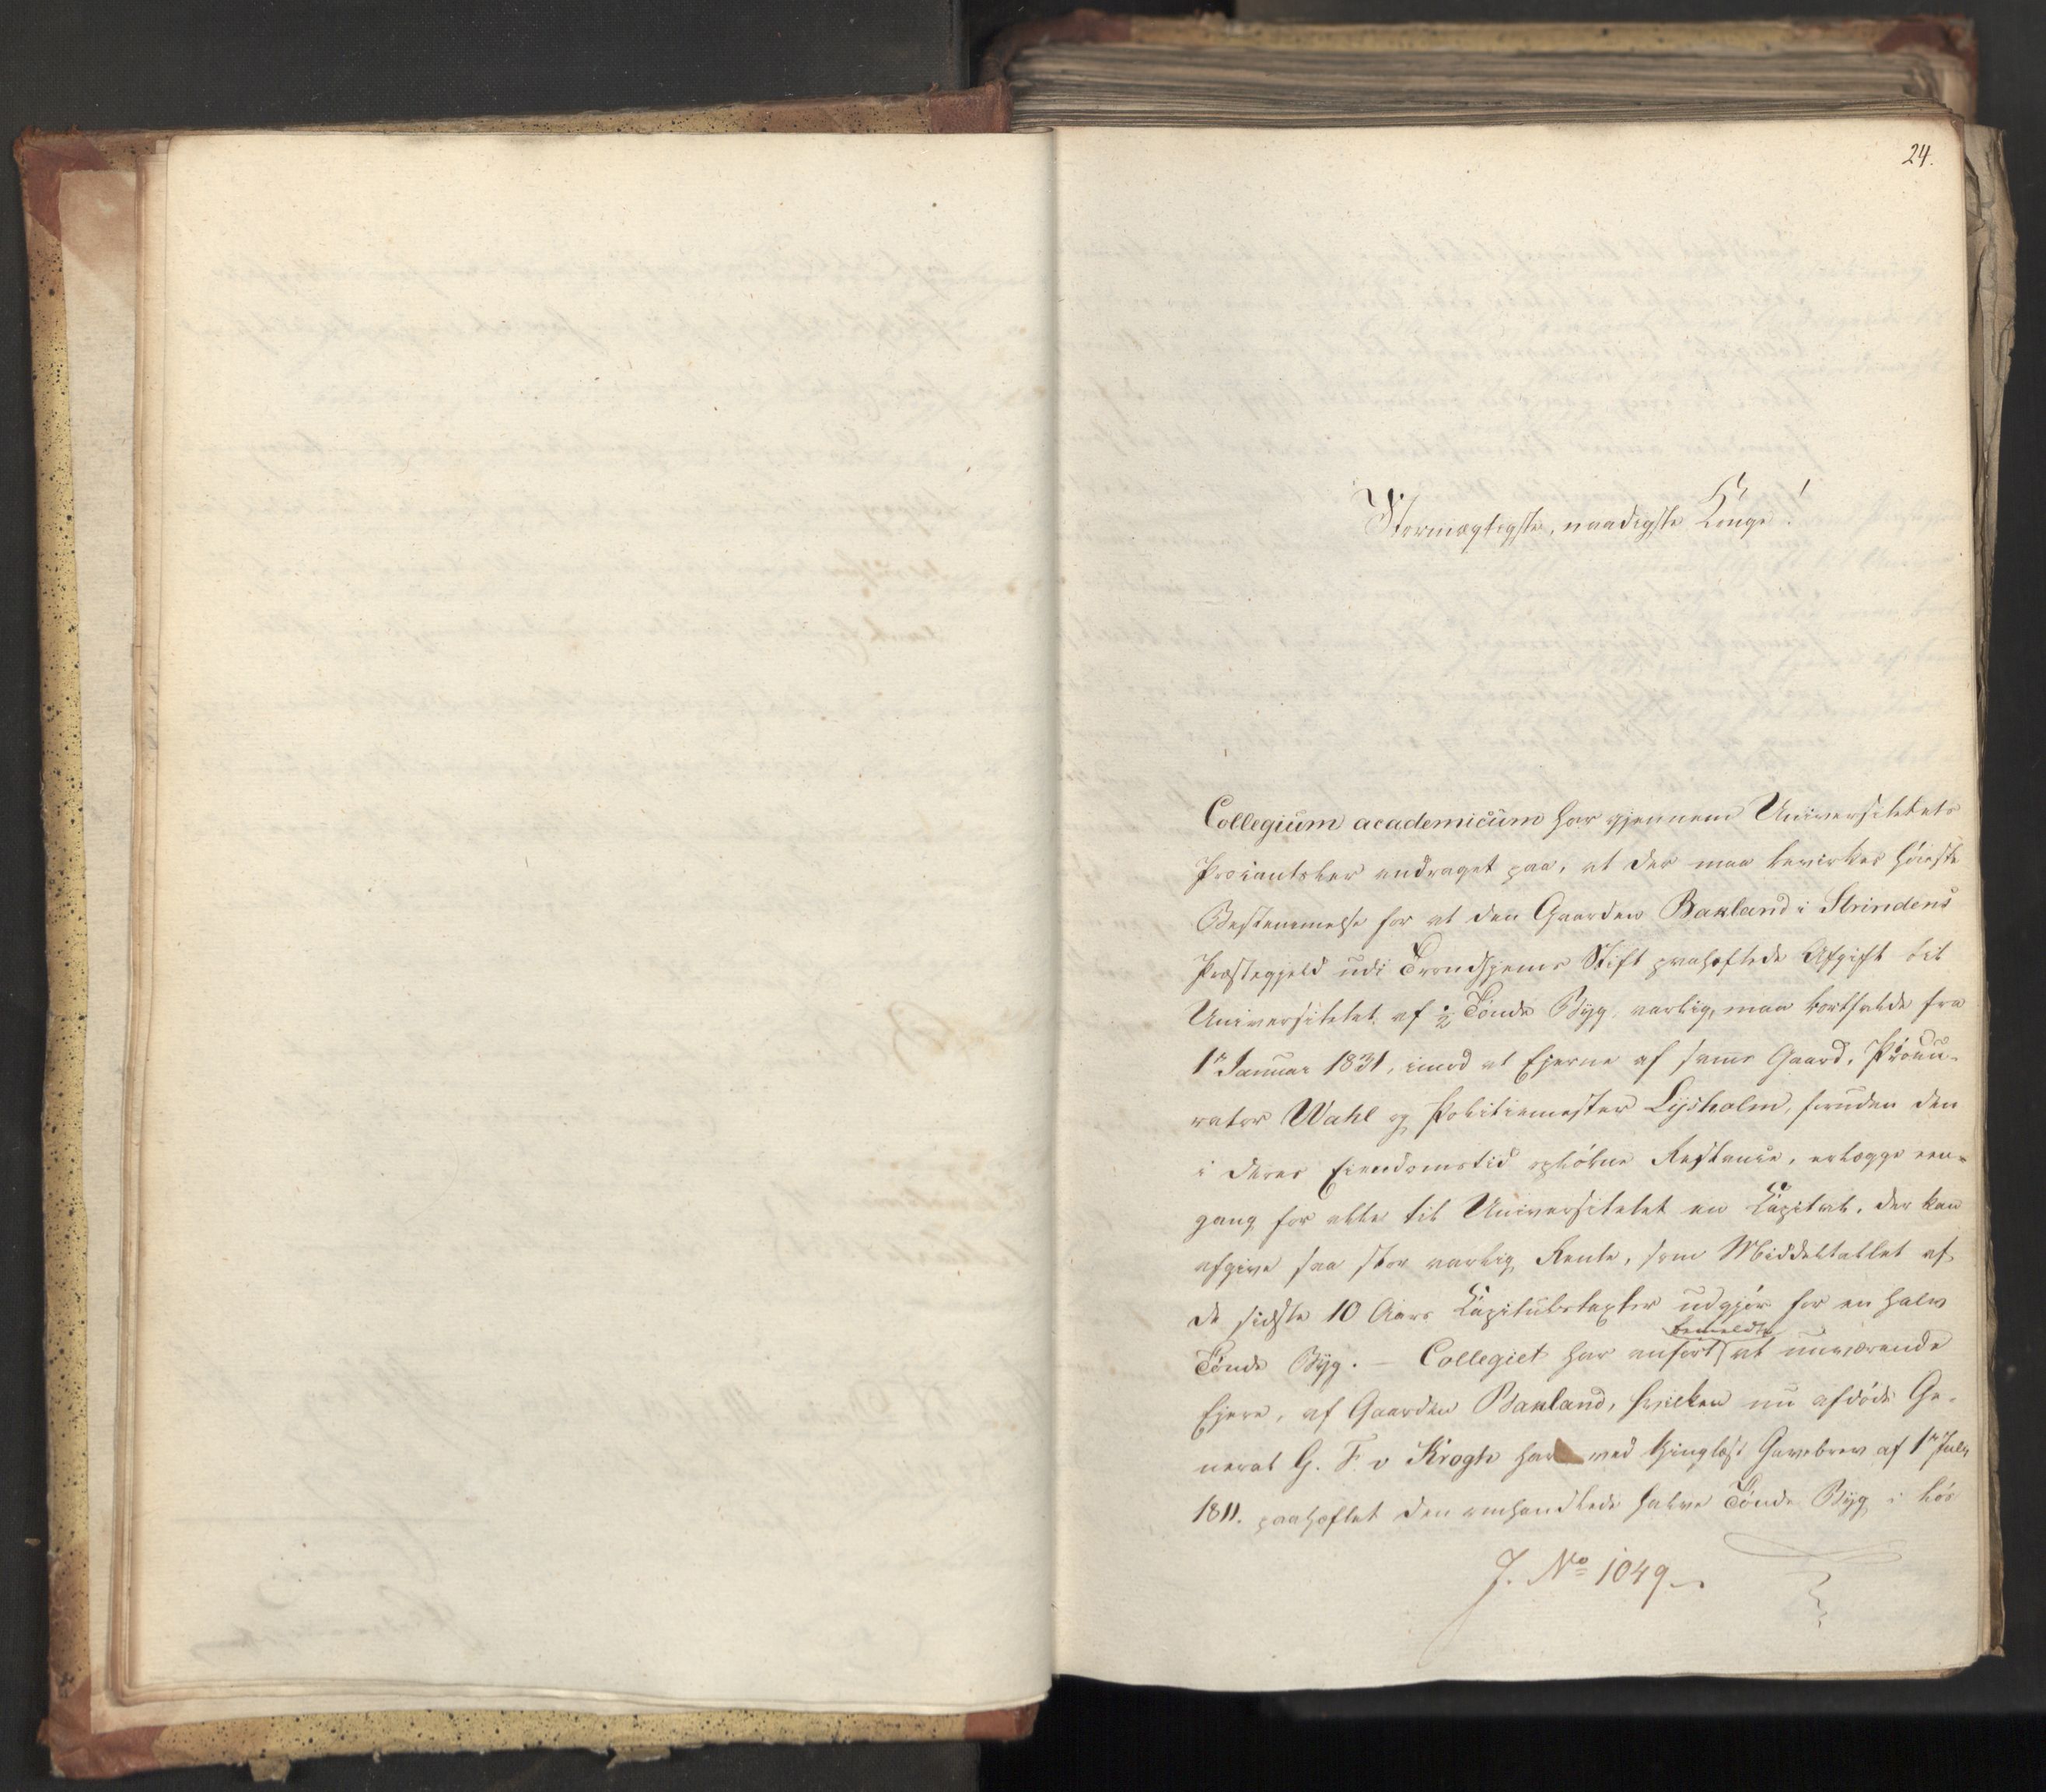 24.
Stormægtigste, naadigste Konge!
Collegium academicum har gjennem Universitetets
Prokantsler andraget paa, at der maa bevirkes høieste
Bestemmelse for at den Gaarden Bakland i Strindens
Præstegjeld udi Trondhjems Stift paaheftede Afgift til
Universitetet, af ½ Tønde Byg aarlig, maa bortfalde fra
1ste Januar 1831, imod at Eierne af samme Gaard, Procu-
rator Wahl og Politiemester Lysholm, foruden den
i deres Eiendomstid opløbne Restance, erlægge een-
gang for alle til Universitetet en Capital, der kan
afgive saa stor aarlig Rente, som Middeltallet af
de sidste 10 Aars Capitulstaxter udgjør for en halv
Tønde Byg. - Collegiet har anført bemeldte at nuværende
Ejere, af Gaarden Bakland, hvilken nu afdøde Ge-
neral G. F. v Krogh har ved thinglæst Gavebrev af 1ste July
1811. paaheftet den omhandlede halve Tønde Byg i lös
J. No 1049